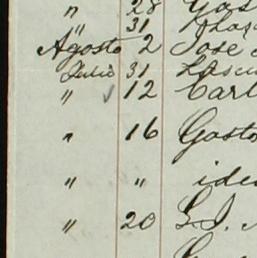 " 28
" 31
Agosto 2 José
Julio 31
" ✓ 12 Carl
" 16 Gasto
" " ide
" 20 G. J.